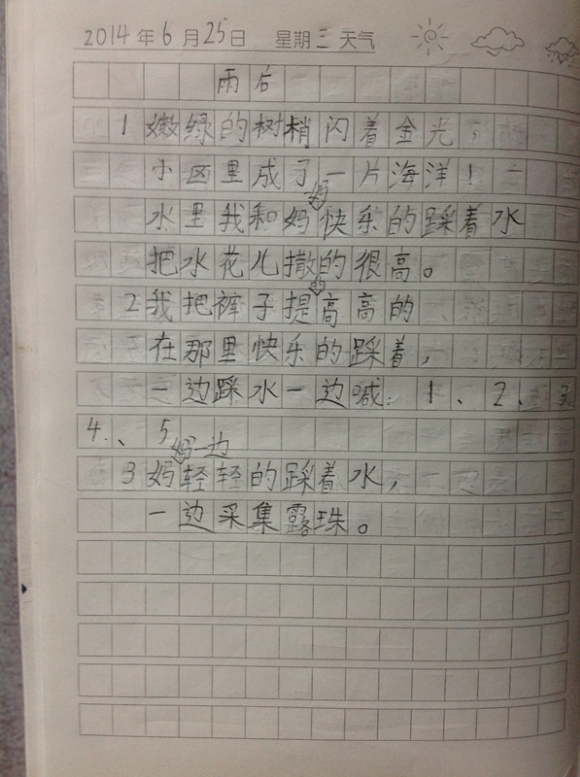 2014年6月25日 星期三 天气
雨后
1 嫩绿的树梢闪着金光，
小区里成了一片海洋！
水里我和妈妈快乐的踩着水
把水花儿撒的很高。
2 我把裤子提的高高的
在那里快乐的踩着，
一边踩水一边喊：1、2、3
4、、5
3 妈妈一边轻轻的踩着水，
一边采集露珠。